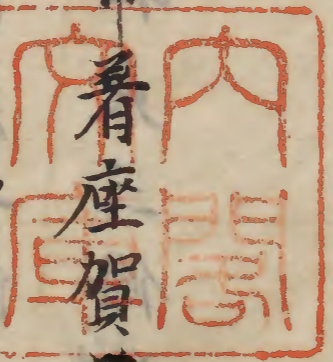 着座賀
内閣
文庫